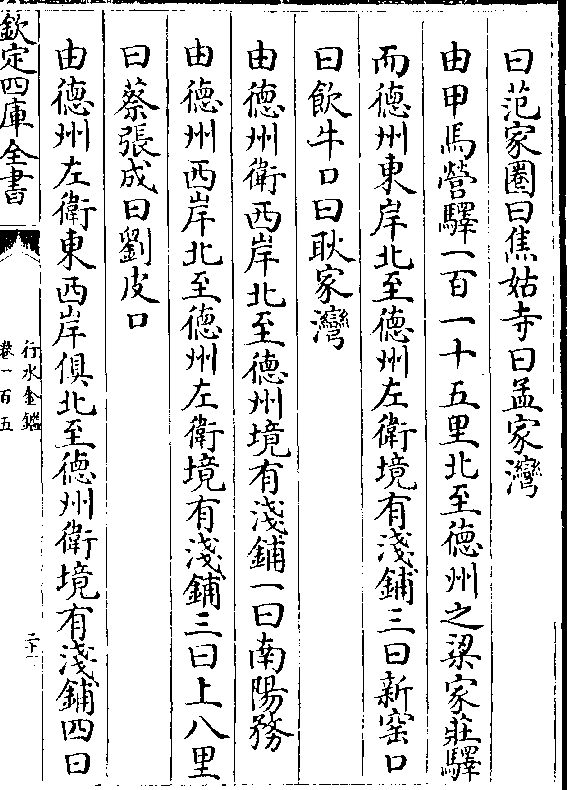 曰范家圈曰焦姑寺曰孟家灣
由甲馬營驛一百一十五里北至德州之梁家莊驛
而德州東岸北至德州左衛境有淺鋪三曰新窑口
曰飲牛口曰耿家灣
由德州衛西岸北至德州境有淺鋪一曰南陽務
由德州西岸北至德州左衛境有淺鋪三曰上八里
曰蔡張成曰劉皮口
由德州左衛東西岸俱北至德州衛境有淺鋪四曰
欽定四庫全書
行水金鑑
卷一百五